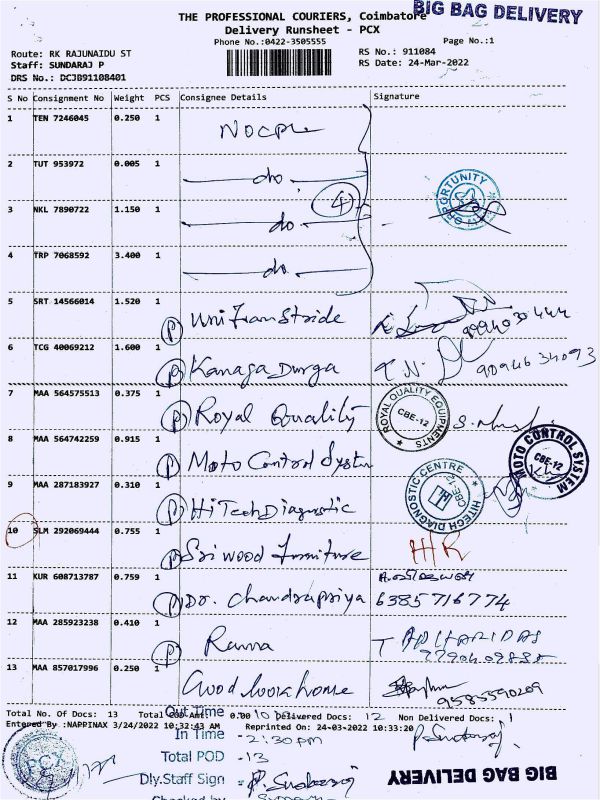 BIG BAG DELIVERY
THE PROFESSIONAL COURIERS, Coimbatore
Delivery Runsheet - PCX
Phone No.:0422-3505555
Page No.:1
Route: RK RAJUNAIDU ST
RS No.: 911084
Staff: SUNDARAJ P
RS Date: 24-Mar-2022
DRS No.: DCJB91108401
S No Consignment No Weight PCS Consignee Details Signature
1 TEN 7246045 0.250 1
2 TUT 953972 0.005 1 do
OPPORTUNITY
3 NKL 7890722 1.150 1 do
4
4 TRP 7068592 3.400 1 do
5 SRT 14566014 1.520 1 P
6 TCG 40069212 1.600 1 P Kanaga Durga 9094634093
7 MAA 564575513 0.375 1 P Royal Quality
ROYAL QUALITY EQUIPMENTS CBE-12
8 MAA 564742259 0.915 1 P Moto Control System
MOTO CONTROL SYSTEM CBE-12
9 MAA 287183927 0.310 1 P HiTech Diagnostic
HITECH DIAGNOSTIC CENTRE CBE-12
10 SLM 292069444 0.755 1 P Sri wood furniture HR
11 KUR 608713787 0.759 1 P Dr. Chandrapriya 6385716774
12 MAA 285923238 0.410 1 P T
13 MAA 857017996 0.250 1 Good look home 9585590209
Total No. Of Docs: 13 Total COD Amt: 0.00 Delivered Docs: 12 Non Delivered Docs: 1
Entered By :NAPPINAX 3/24/2022 10:32:43 AM Reprinted On: 24-03-2022 10:33:20
Out Time
In Time - 2:30 pm
Total POD - 13
Dly.Staff Sign - P. Sundaraj
P. Sundaraj
Checked by
PCX
BIG BAG DELIVERY